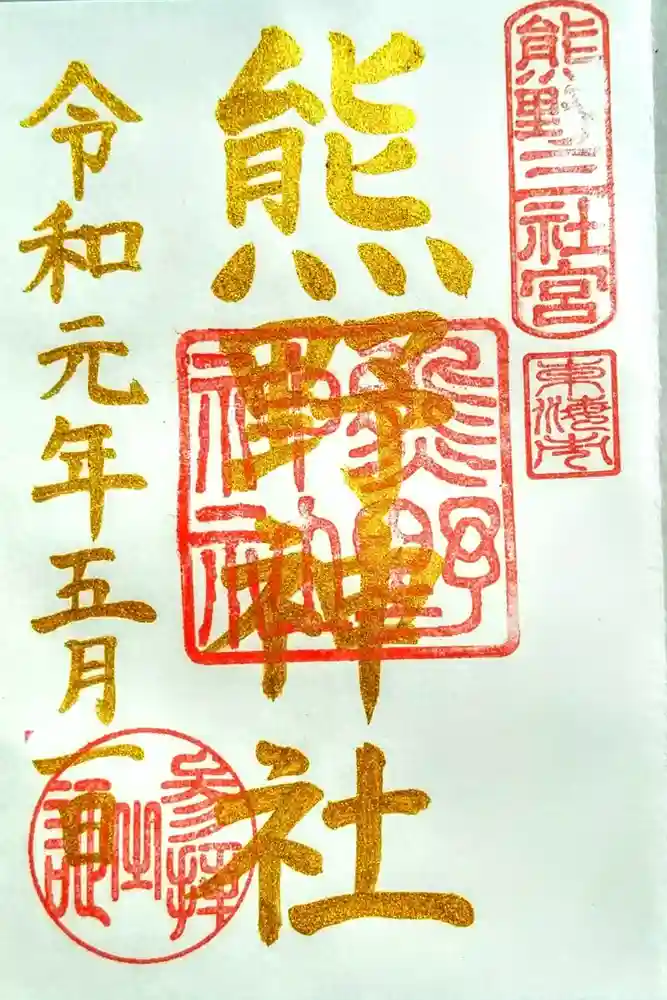 熊野三社宮
東海七
熊野神社
熊野神社
令和元年五月一日
参拝之証